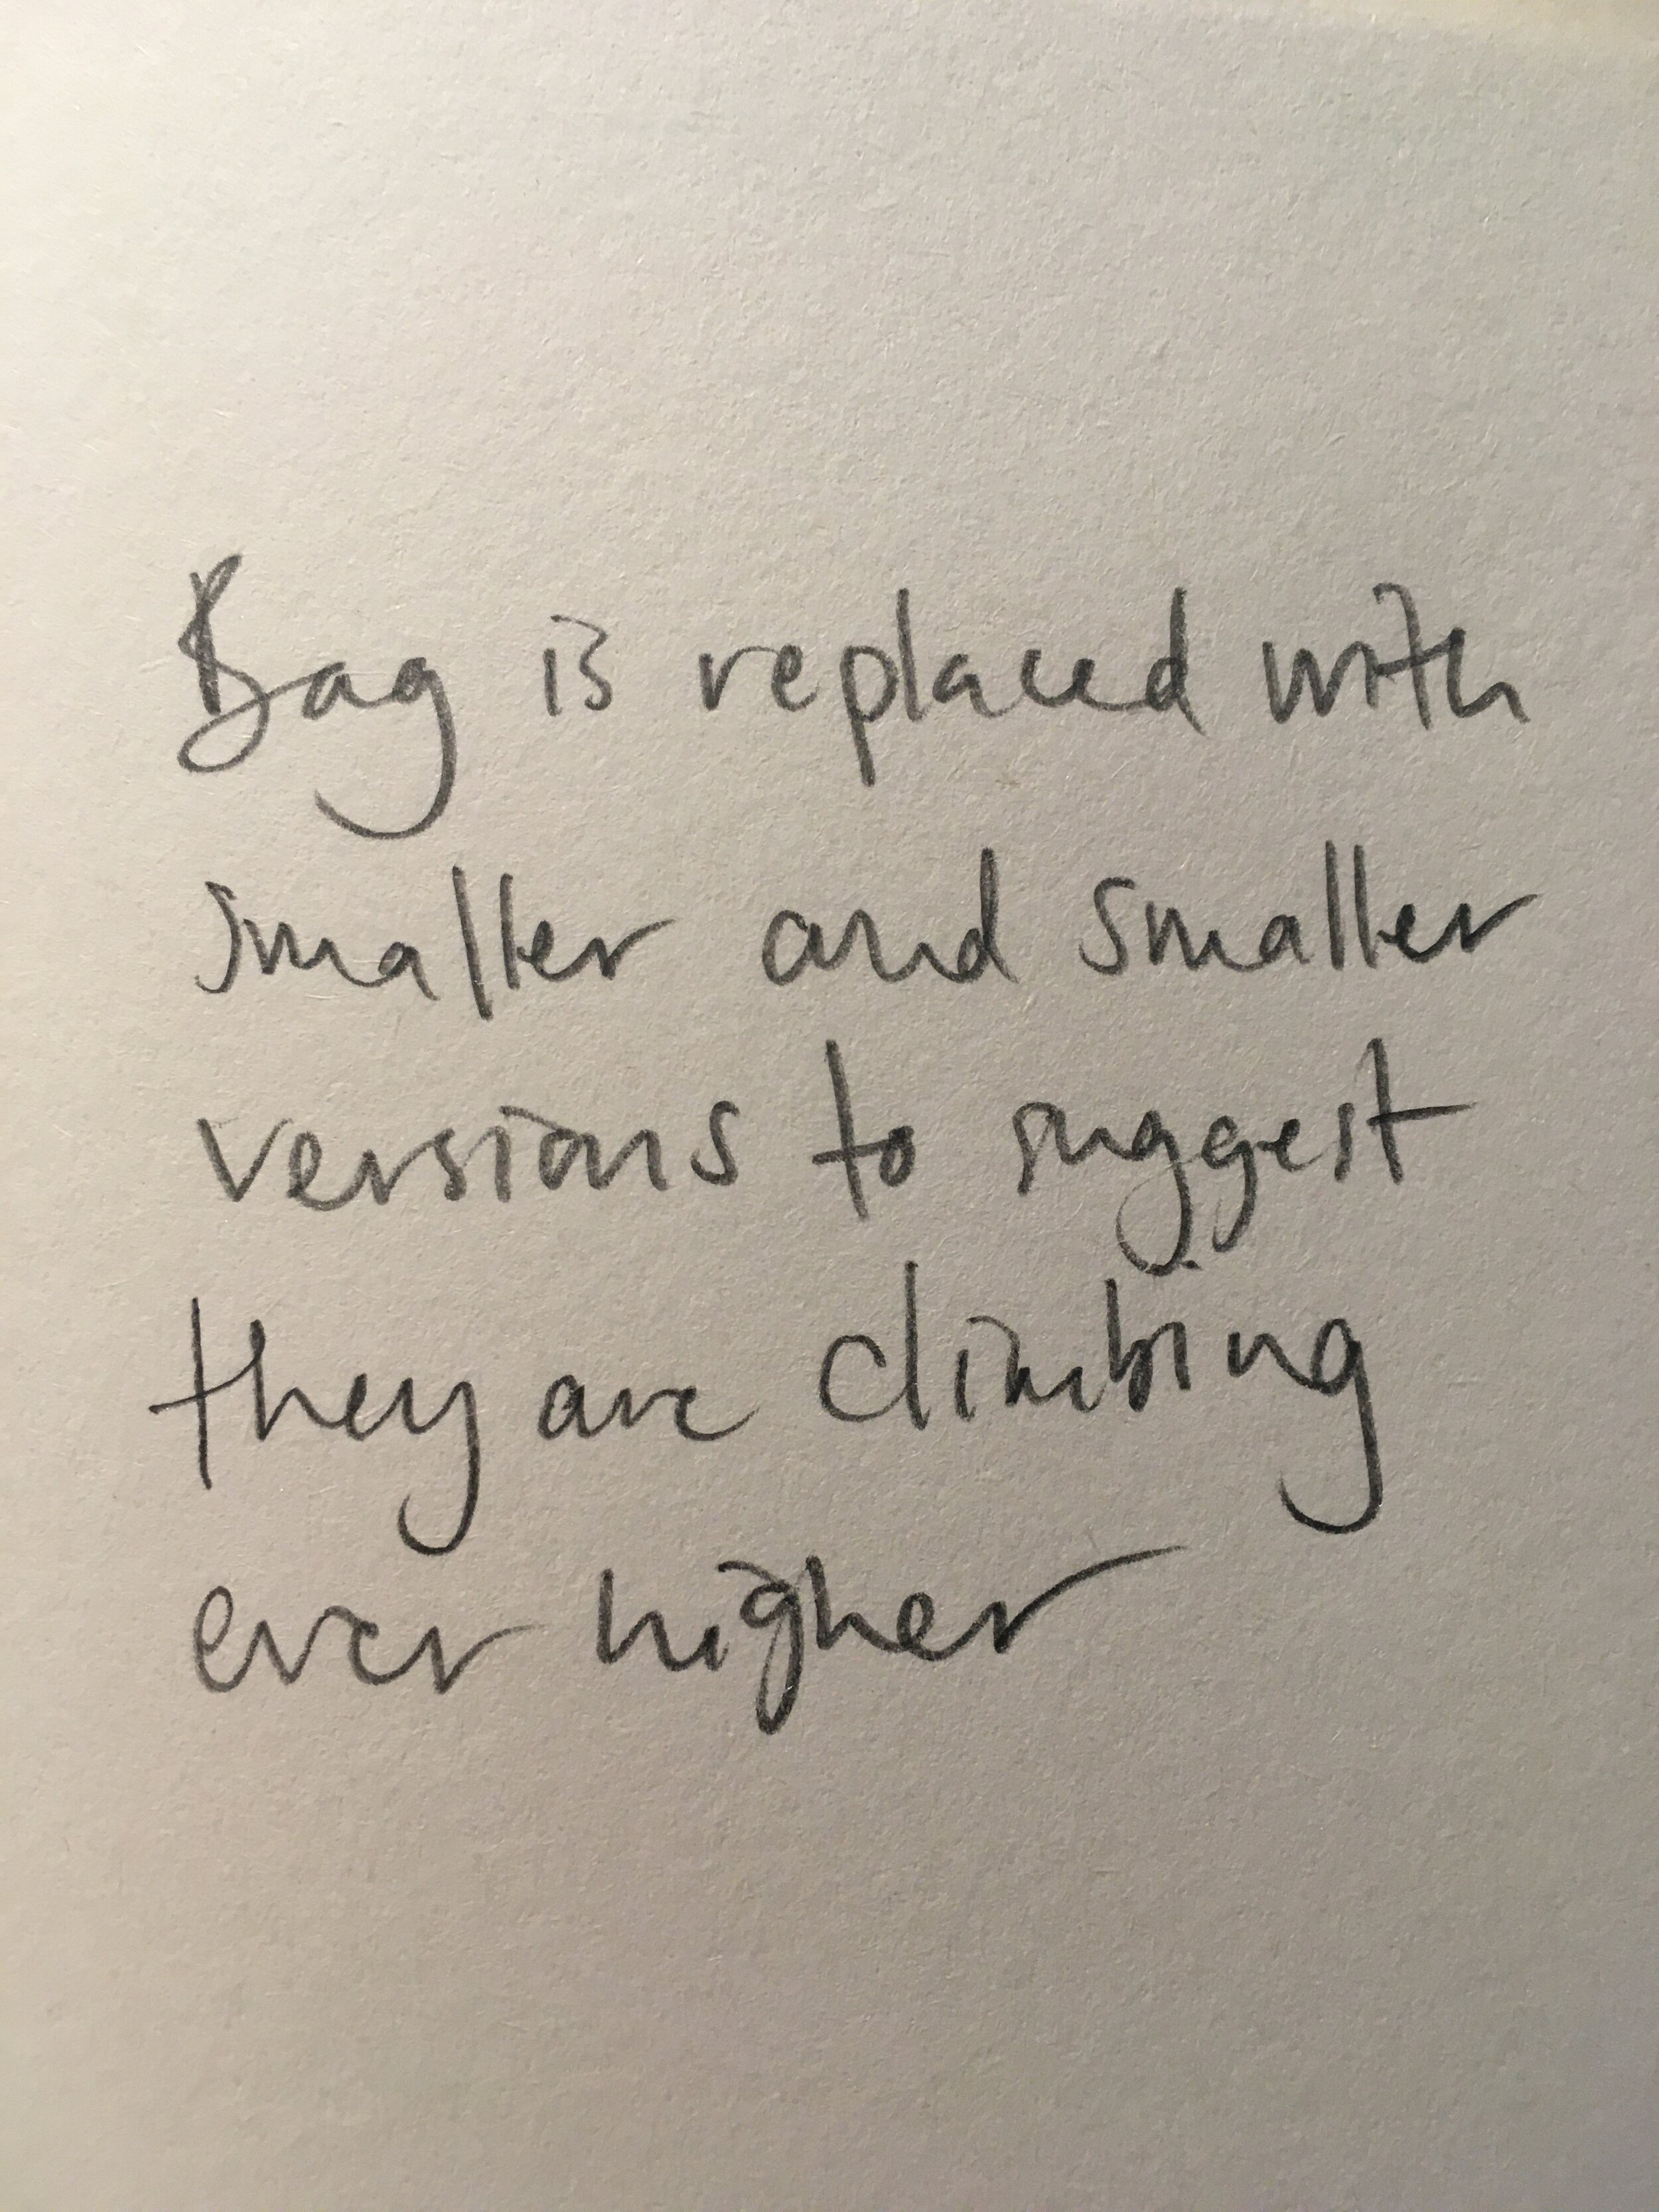 Bag is replaced with
smaller and smaller
versions to suggest
they are climbing
ever higher